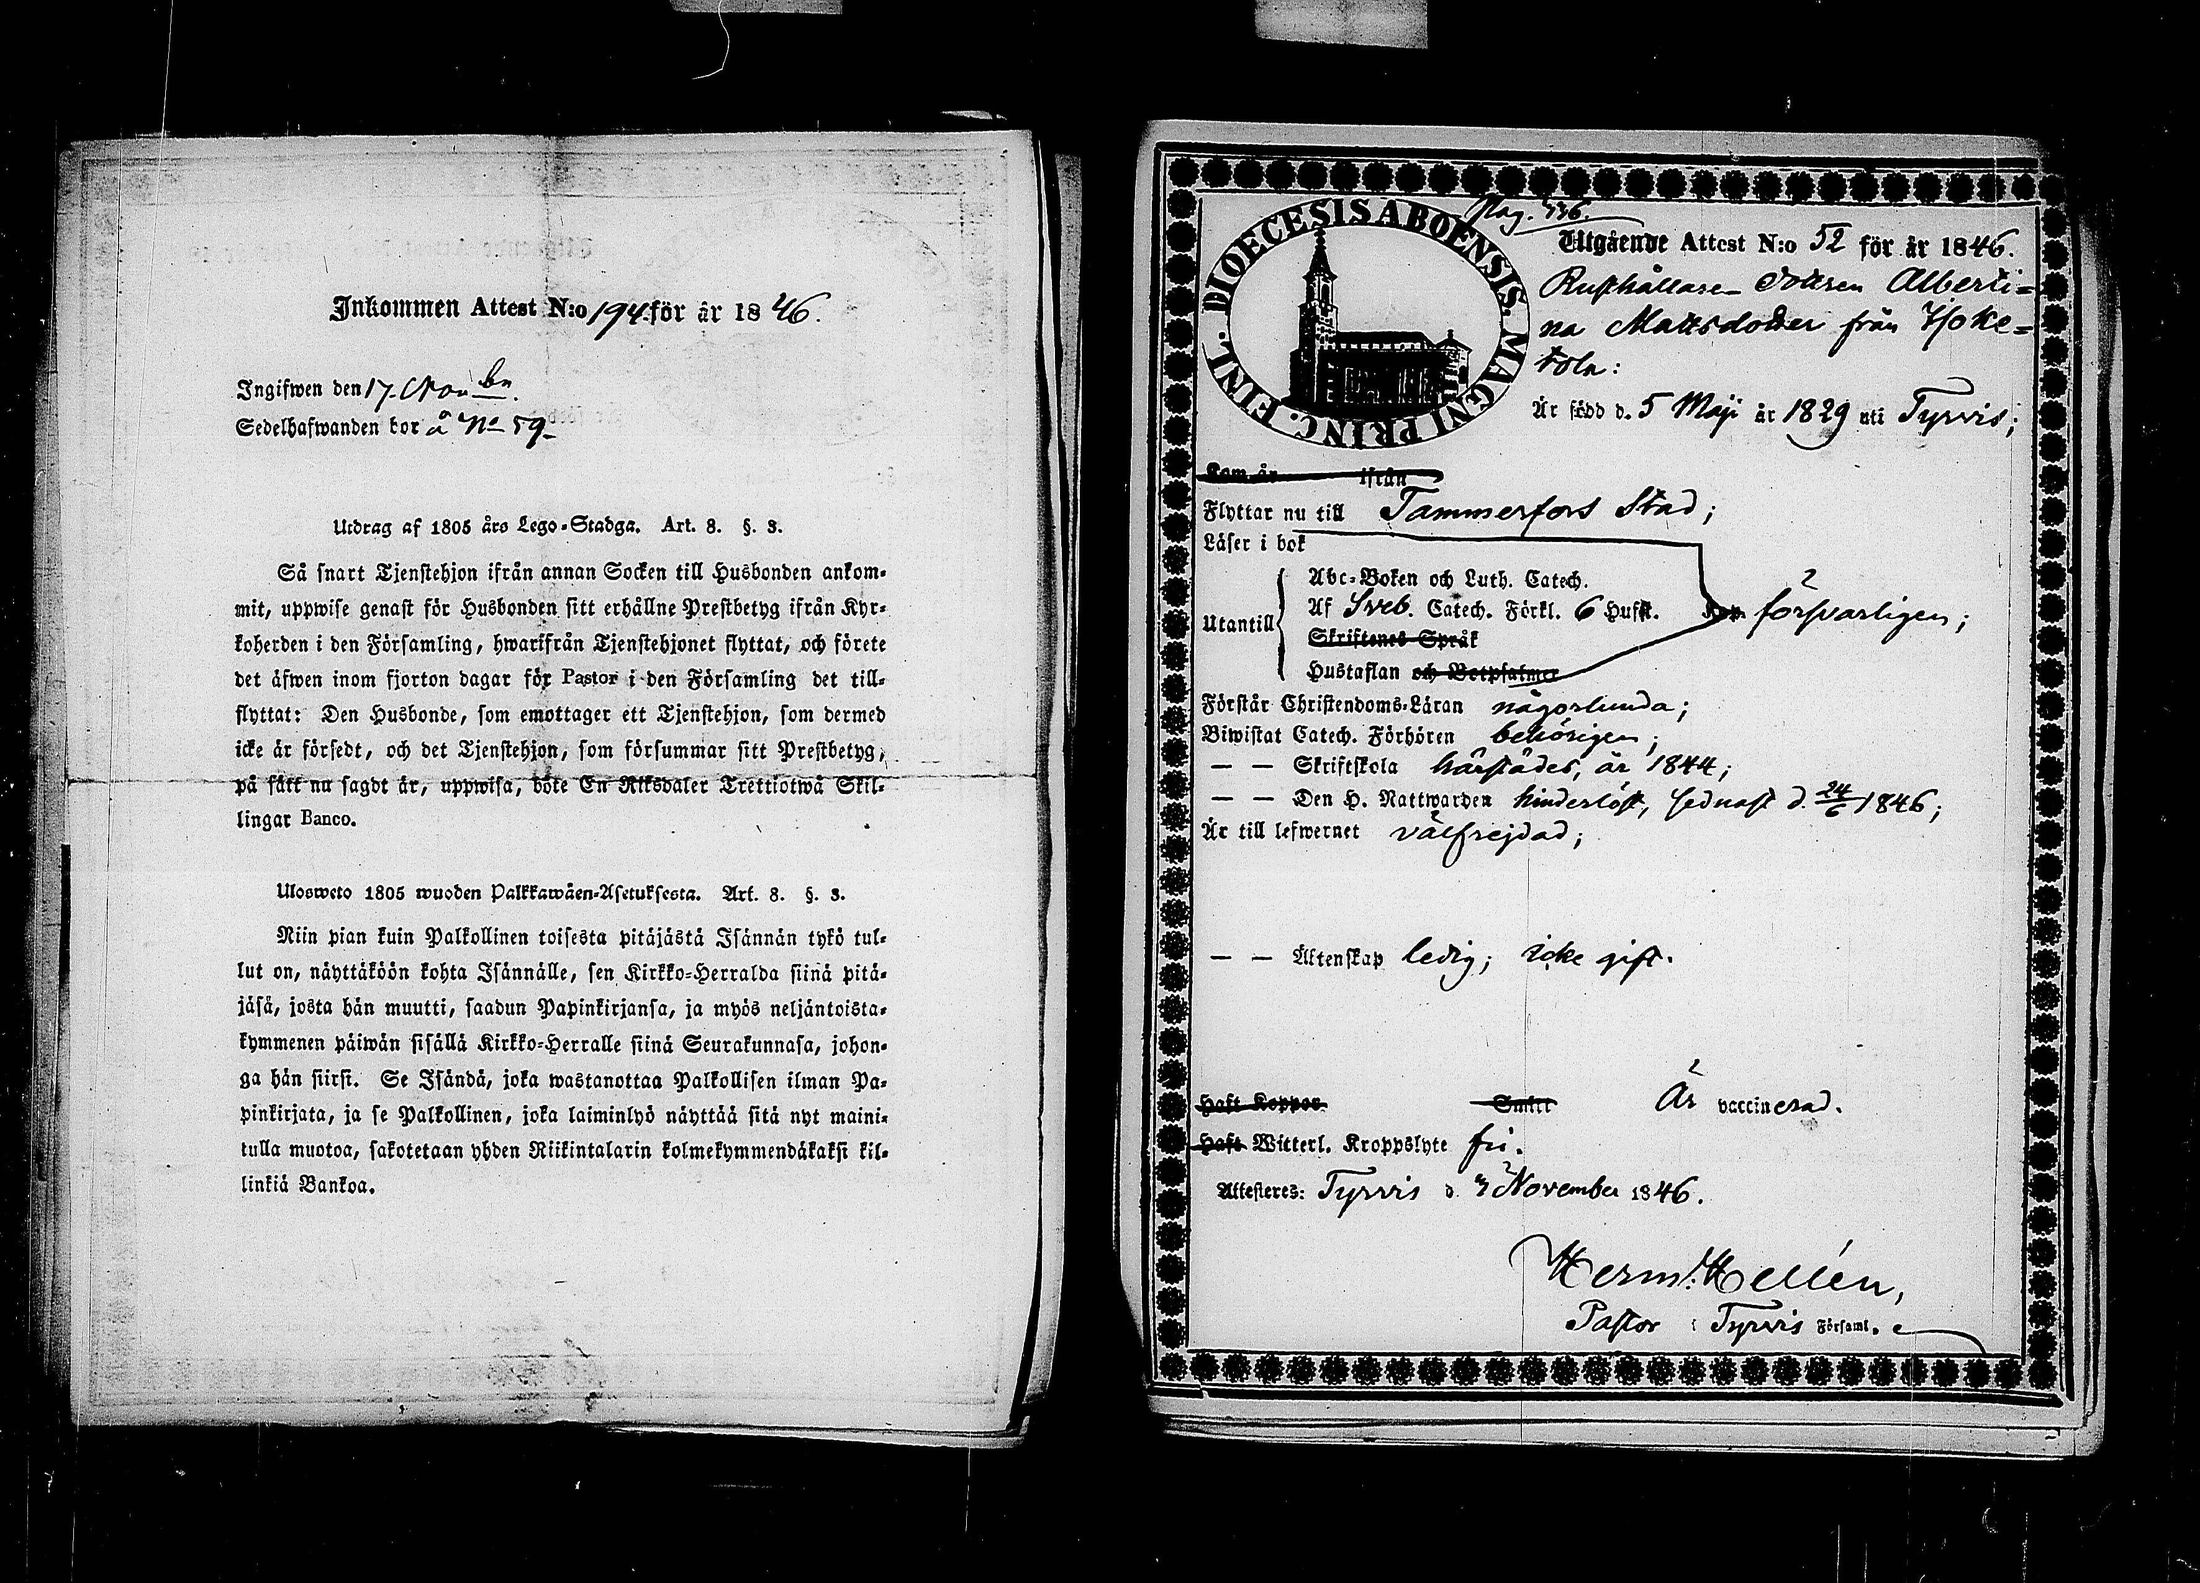 Inkommen Attest N:o 194. för år 1846.
Ingifwen den 17 Novbr.
Sedelhafwanden bor å No 59
Utdrag af 1805 års Lego-Stadga. Art. 8. §. 3.
Så snart Tjenstehjon ifrån annan Socken till Husbonden ankom-
mit, uppwise genast för Husbonden sitt erhållne Prestbetyg ifrån Kyr-
koherden i den Församling, hwarifrån Tjenstehjonet flyttat, och förete
det äfwen inom fjorton dagar för Pastor i den Församling det till-
flyttat: Den Husbonde, som emottager ett Tjenstehjon, som dermed
icke är försedt, och det Tjenstehjon, som försummar sitt Prestbetyg,
på sätt nu sagdt är, uppwisa, böte En Riksdaler Trettiotwå Skil-
lingar Banco.
Ulosweto 1805 wuoden Palkkawäen-Asetuksesta. Art. 8. §. 3.
Niin pian kuin Palkollinen toisesta pitäjästä Isännän tykö tul-
lut on, näyttäköön kohta Isännälle, sen Kirkko-Herralda siinä pitä-
jäsä, josta hän muutti, saadun Papinkirjansa, ja myös neljäntoista-
kymmenen päiwän sisällä Kirkko-Herralle siinä Seurakunnasa, johon-
ga hän siirsi. Se Isändä, joka wastanottaa Palkollisen ilman Pa-
pinkirjata, ja se Palkollinen, joka laiminlyö näyttää sitä nyt maini-
tulla muotoa, sakotetaan yhden Riikintalarin kolmekymmendäkaksi kil-
linkiä Bankoa.
Pag. 336.
DIOECESIS ABOENSIS. MAGNI PRINC. FINL.
Utgående Attest N:o 52 för år 1846.
Rusthållare Dottren Alberti-
na Mattsdotter från
tola:
Är född d. 5 Maji år 1829 uti Tyrvis;
Kom år ifrån
Flyttar nu till Tammerfors Stad;
Läser i bok
Utantill
Abc-Boken och Luth. Catech.
Af Sveb. Catech. Förkl. 6 Hufst. försvarligen;
Skriftenes Språk
Hustaflan och Botpsalmer
Förstår Christendoms-Läran någorlunda;
Biwistat Catech. Förhören behörigen;
— — Skriftskola härstädes, år 1844;
— — Den H. Nattwarden hinderlöst, sednast d. 24/6 1846;
Är till lefwernet välfrejdad;
— — Äktenskap ledig; icke gift.
Haft Koppor Smitt Är vaccinerad.
Haft Witterl. Kroppslyte fri.
Attesteres: Tyrvis d. 3 November 1846.
Herm. Hellén,
Pastor i Tyrvis Församl.